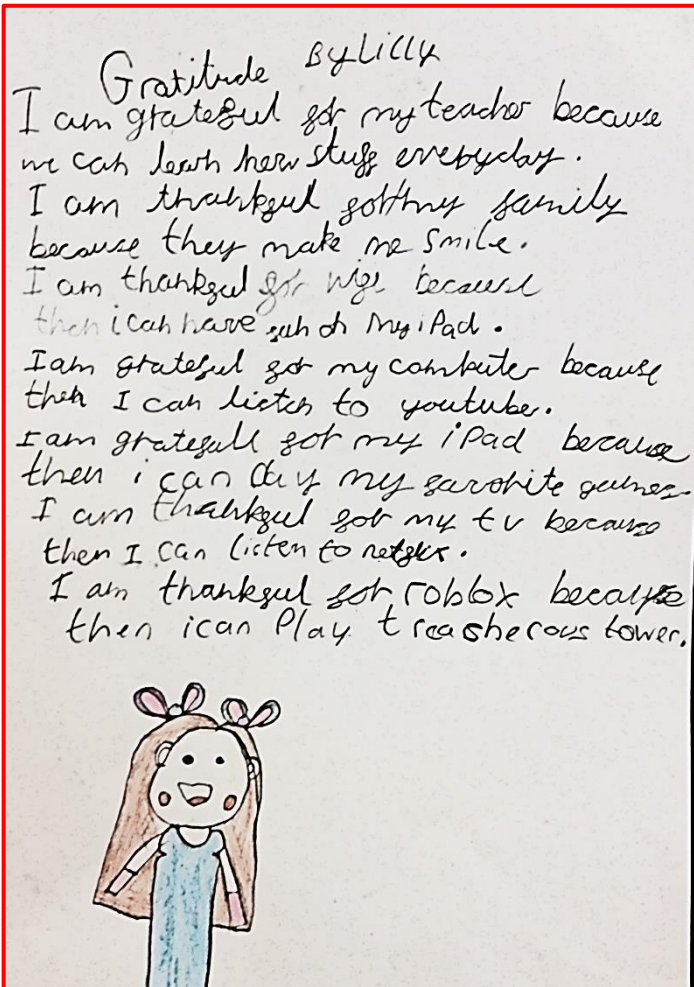 Gratitude By Lilly
I am grateful for my teacher because
we can learn new stuff everyday.
I am thankful for my family
because they make me smile.
I am thankful for wifi because
then i can have fun on my iPad.
I am grateful for my computer because
then I can listen to youtube.
I am gratefull for my iPad because
then i can play my favorite games
I am thankful for my tv because
then I can listen to netflix.
I am thankful for roblox because
then i can Play treacherous tower.